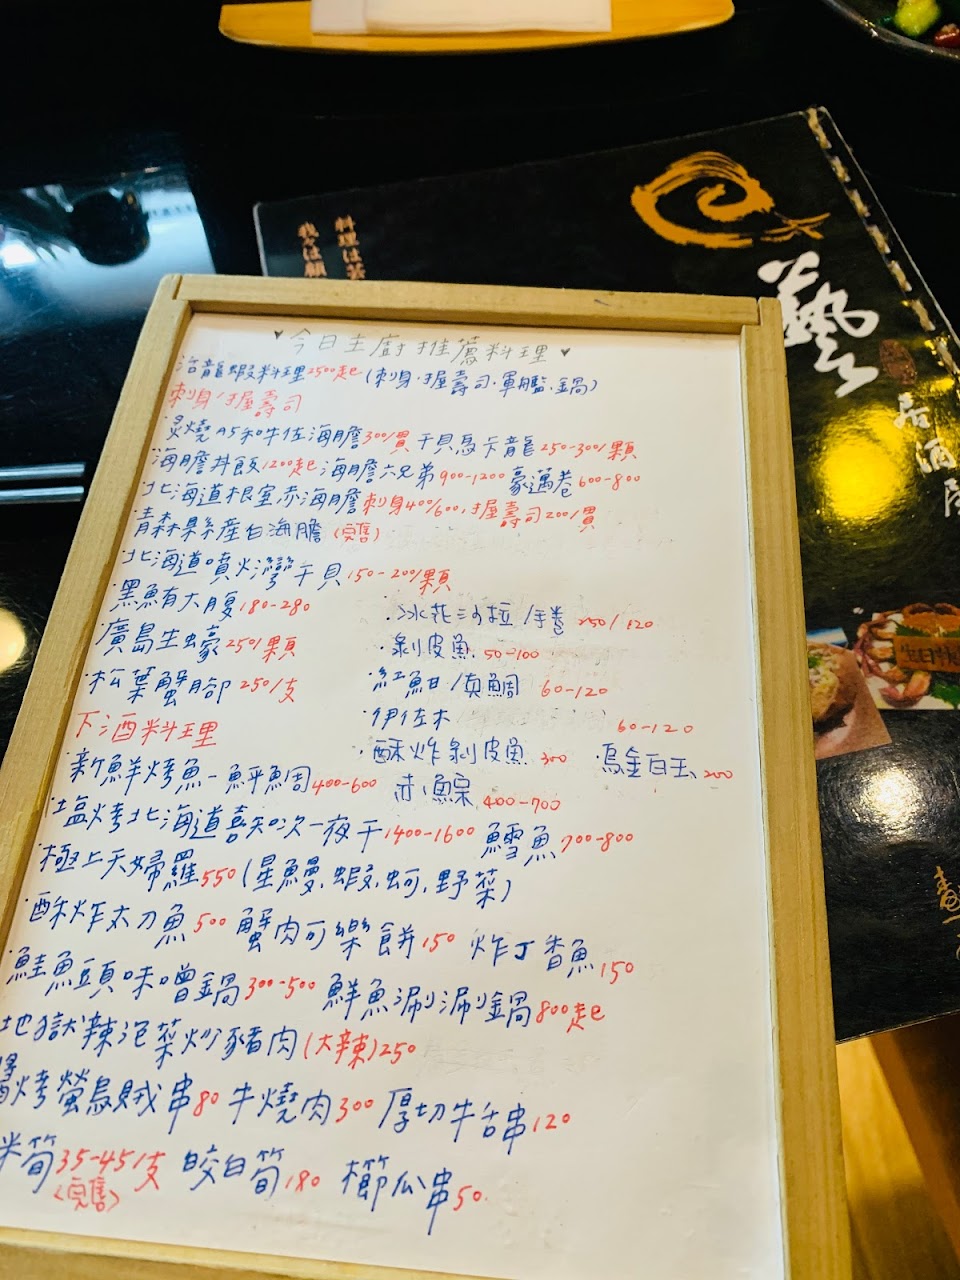 ♥今日主廚推薦料理♥
活龍蝦料理2500起(刺身.握壽司.軍艦.鍋)
刺身/握壽司
炙燒A5和牛佐海膽300/貫 干貝馬卡龍250-300/顆
海膽丼飯1200起 海膽六兄弟900-1200 豪邁卷600-800
北海道根室赤海膽刺身400/600,握壽司200/貫
青森縣産白海膽(完售)
北海道噴火灣干貝150-200/顆
黑鮪大腹180-280
廣島生蠔250/顆
松葉蟹腳250/支
·冰花沙拉/手卷250/120
·剝皮魚50-100
紅魽/真鯛60-120
·伊佐木60-120
下酒料理
·酥炸剝皮魚300
·烏金白玉200
新鮮烤魚-鮃鯛400-600
赤鯮400-700
塩烤北海道喜知次一夜干1400-1600 鱈魚700-800
極上天婦羅550(星鰻.蝦.蚵.野菜)
酥炸太刀魚500 蟹肉可樂餅150 炸丁香魚150
鮭魚頭味噌鍋300-500 鮮魚涮涮鍋800起
地獄辣泡菜炒豬肉(大辣)250
醬烤螢烏賊串80 牛燒肉300 厚切牛舌串120
米筍35-45/支(完售) 皎白筍180 櫛瓜串50
藝
居酒屋
料理は芸